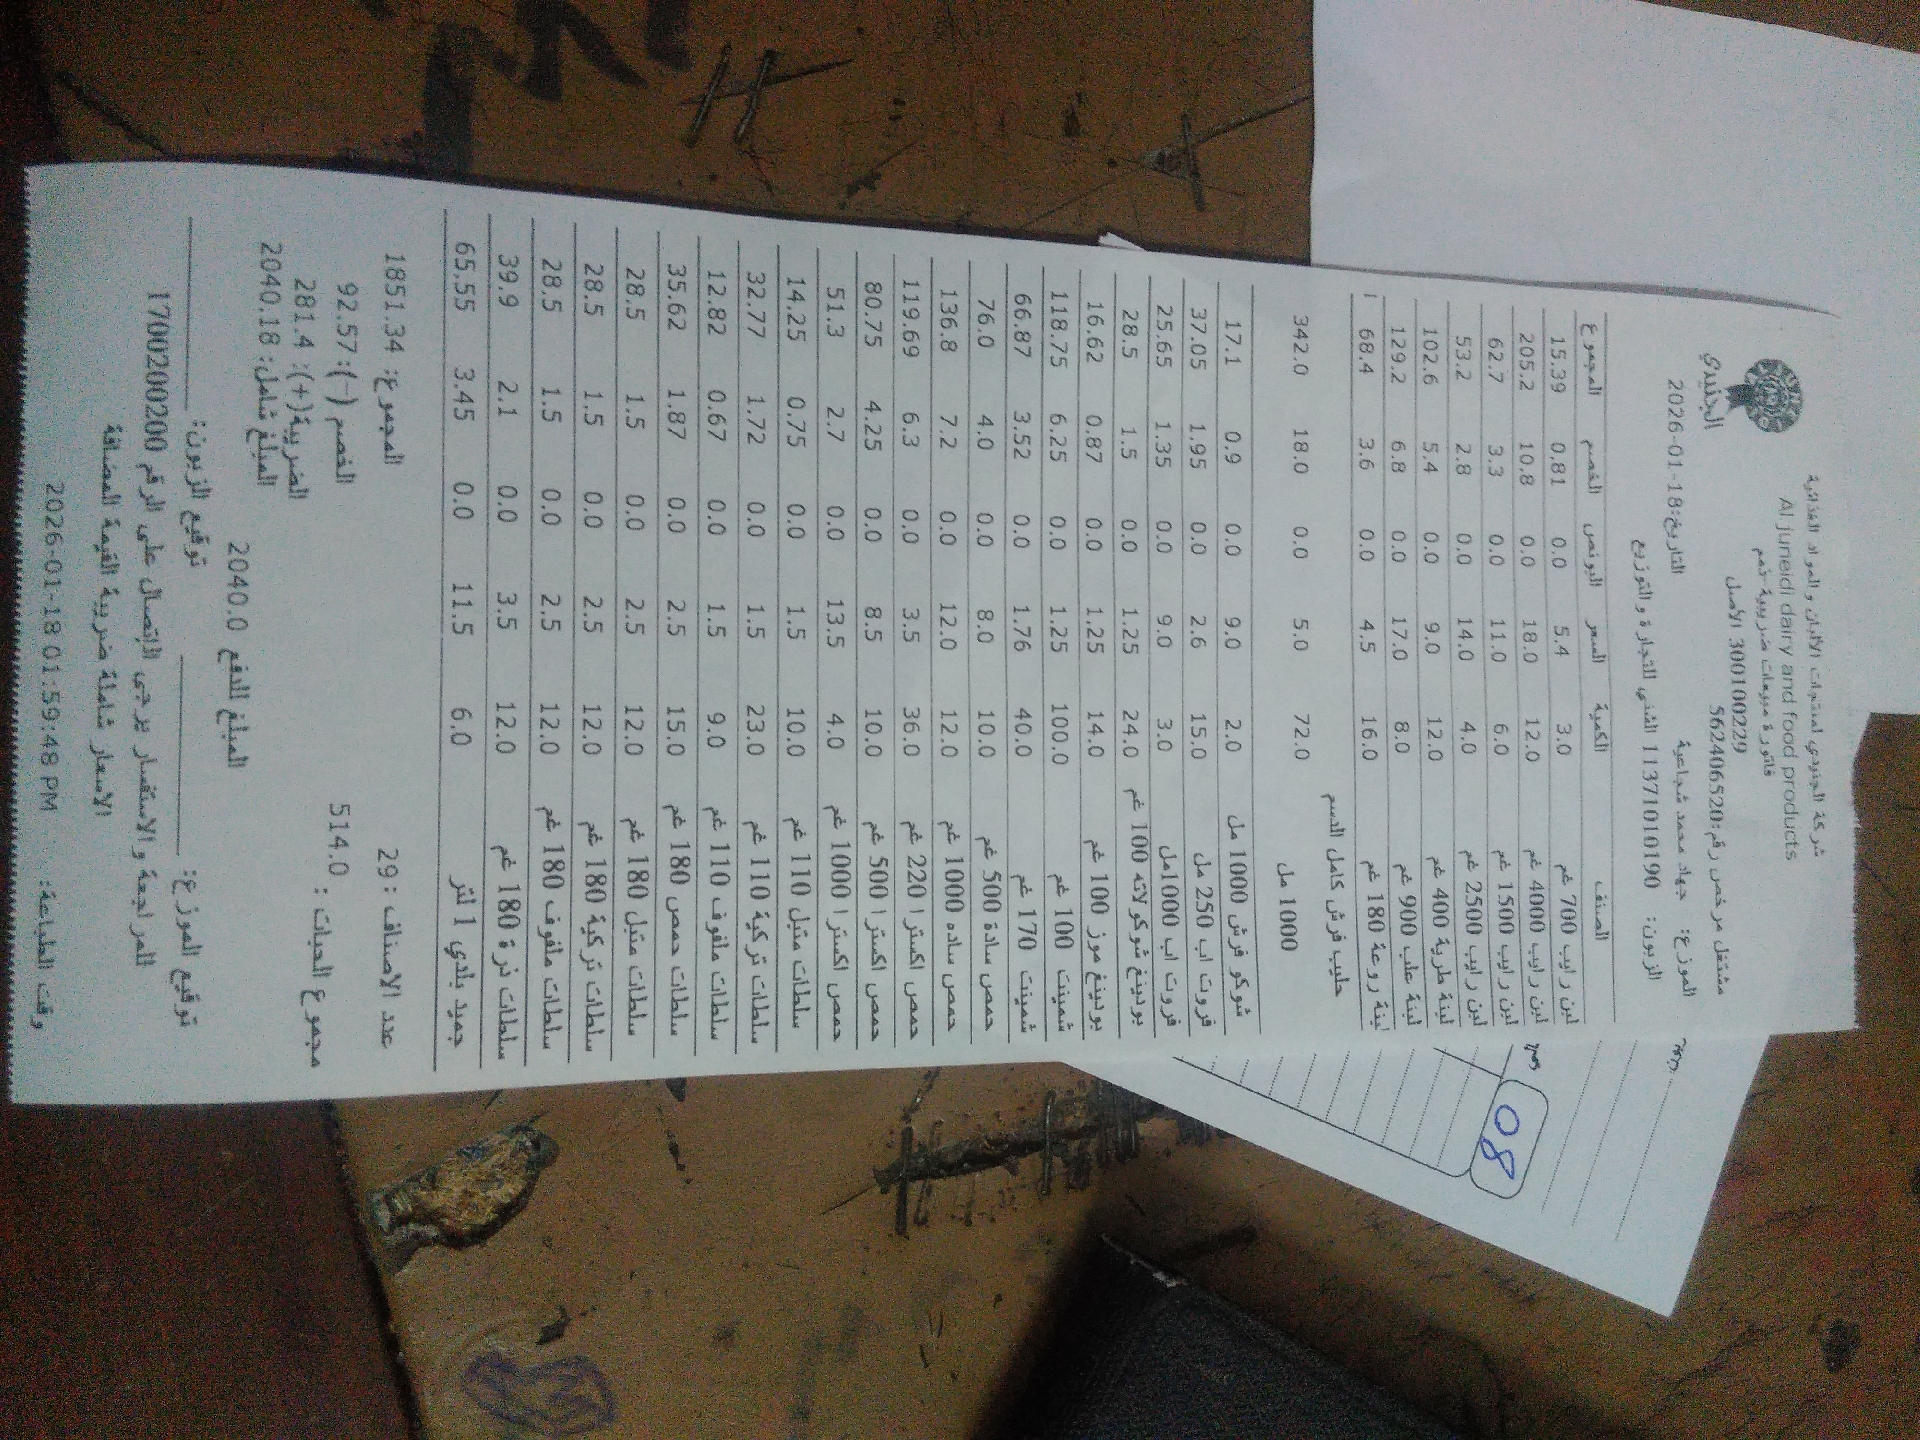 شركة الجنيدي لمنتجات الالبان والمواد الغذائية
Al juneidi dairy and food products
فاتورة مبيعات ضريبية-ذمم
300100229 الأصل
مشتغل مرخص رقم:562406520
الجنيدي
الموزع: جهاد محمد شجاعية التاريخ:2026-01-18
الزبون: 1137101010190 الغني للتجارة و التوزيع
الصنف الكمية السعر البونص الخصم المجموع
لبن رايب 700 غم 3.0 5.4 0.0 0.81 15.39
لبن رايب 4000 غم 12.0 18.0 0.0 10.8 205.2
لبن رايب 1500 غم 6.0 11.0 0.0 3.3 62.7
لبن رايب 2500 غم 4.0 14.0 0.0 2.8 53.2
لبنة طرية 400 غم 12.0 9.0 0.0 5.4 102.6
لبنة علب 900 غم 8.0 17.0 0.0 6.8 129.2
لبنة روعة 180 غم 16.0 4.5 0.0 3.6 68.4
حليب فرش كامل الدسم
1000 مل 72.0 5.0 0.0 18.0 342.0
شوكو فرش 1000 مل 2.0 9.0 0.0 0.9 17.1
فروت اب 250 مل 15.0 2.6 0.0 1.95 37.05
فروت اب 1000مل 3.0 9.0 0.0 1.35 25.65
بودينغ شوكولاته 100 غم 24.0 1.25 0.0 1.5 28.5
بودينغ موز 100 غم 14.0 1.25 0.0 0.87 16.62
شمينت 100 غم 100.0 1.25 0.0 6.25 118.75
شمينت 170 غم 40.0 1.76 0.0 3.52 66.87
حمص سادة 500 غم 10.0 8.0 0.0 4.0 76.0
حمص ساده 1000 غم 12.0 12.0 0.0 7.2 136.8
حمص اكسترا 220 غم 36.0 3.5 0.0 6.3 119.69
حمص اكسترا 500 غم 10.0 8.5 0.0 4.25 80.75
حمص اكسترا 1000 غم 4.0 13.5 0.0 2.7 51.3
سلطات متبل 110 غم 10.0 1.5 0.0 0.75 14.25
سلطات تركية 110 غم 23.0 1.5 0.0 1.72 32.77
سلطات ملفوف 110 غم 9.0 1.5 0.0 0.67 12.82
سلطات حمص 180 غم 15.0 2.5 0.0 1.87 35.62
سلطات متبل 180 غم 12.0 2.5 0.0 1.5 28.5
سلطات تركية 180 غم 12.0 2.5 0.0 1.5 28.5
سلطات ملفوف 180 غم 12.0 2.5 0.0 1.5 28.5
سلطات ذرة 180 غم 12.0 3.5 0.0 2.1 39.9
جميد بلدي 1 لتر 6.0 11.5 0.0 3.45 65.55
عدد الاصناف : 29 المجموع: 1851.34
مجموع الحبات : 514.0 الخصم (-): 92.57
الضريبة(+): 281.4
المبلغ شامل: 2040.18
المبلغ الدفع 2040.0
توقيع الموزع: توقيع الزبون:
للمراجعة والاستفسار يرجى الاتصال على الرقم 1700200200
الاسعار شاملة ضريبة القيمة المضافة
وقت الطباعة: 2026-01-18 01:59:48 PM
08